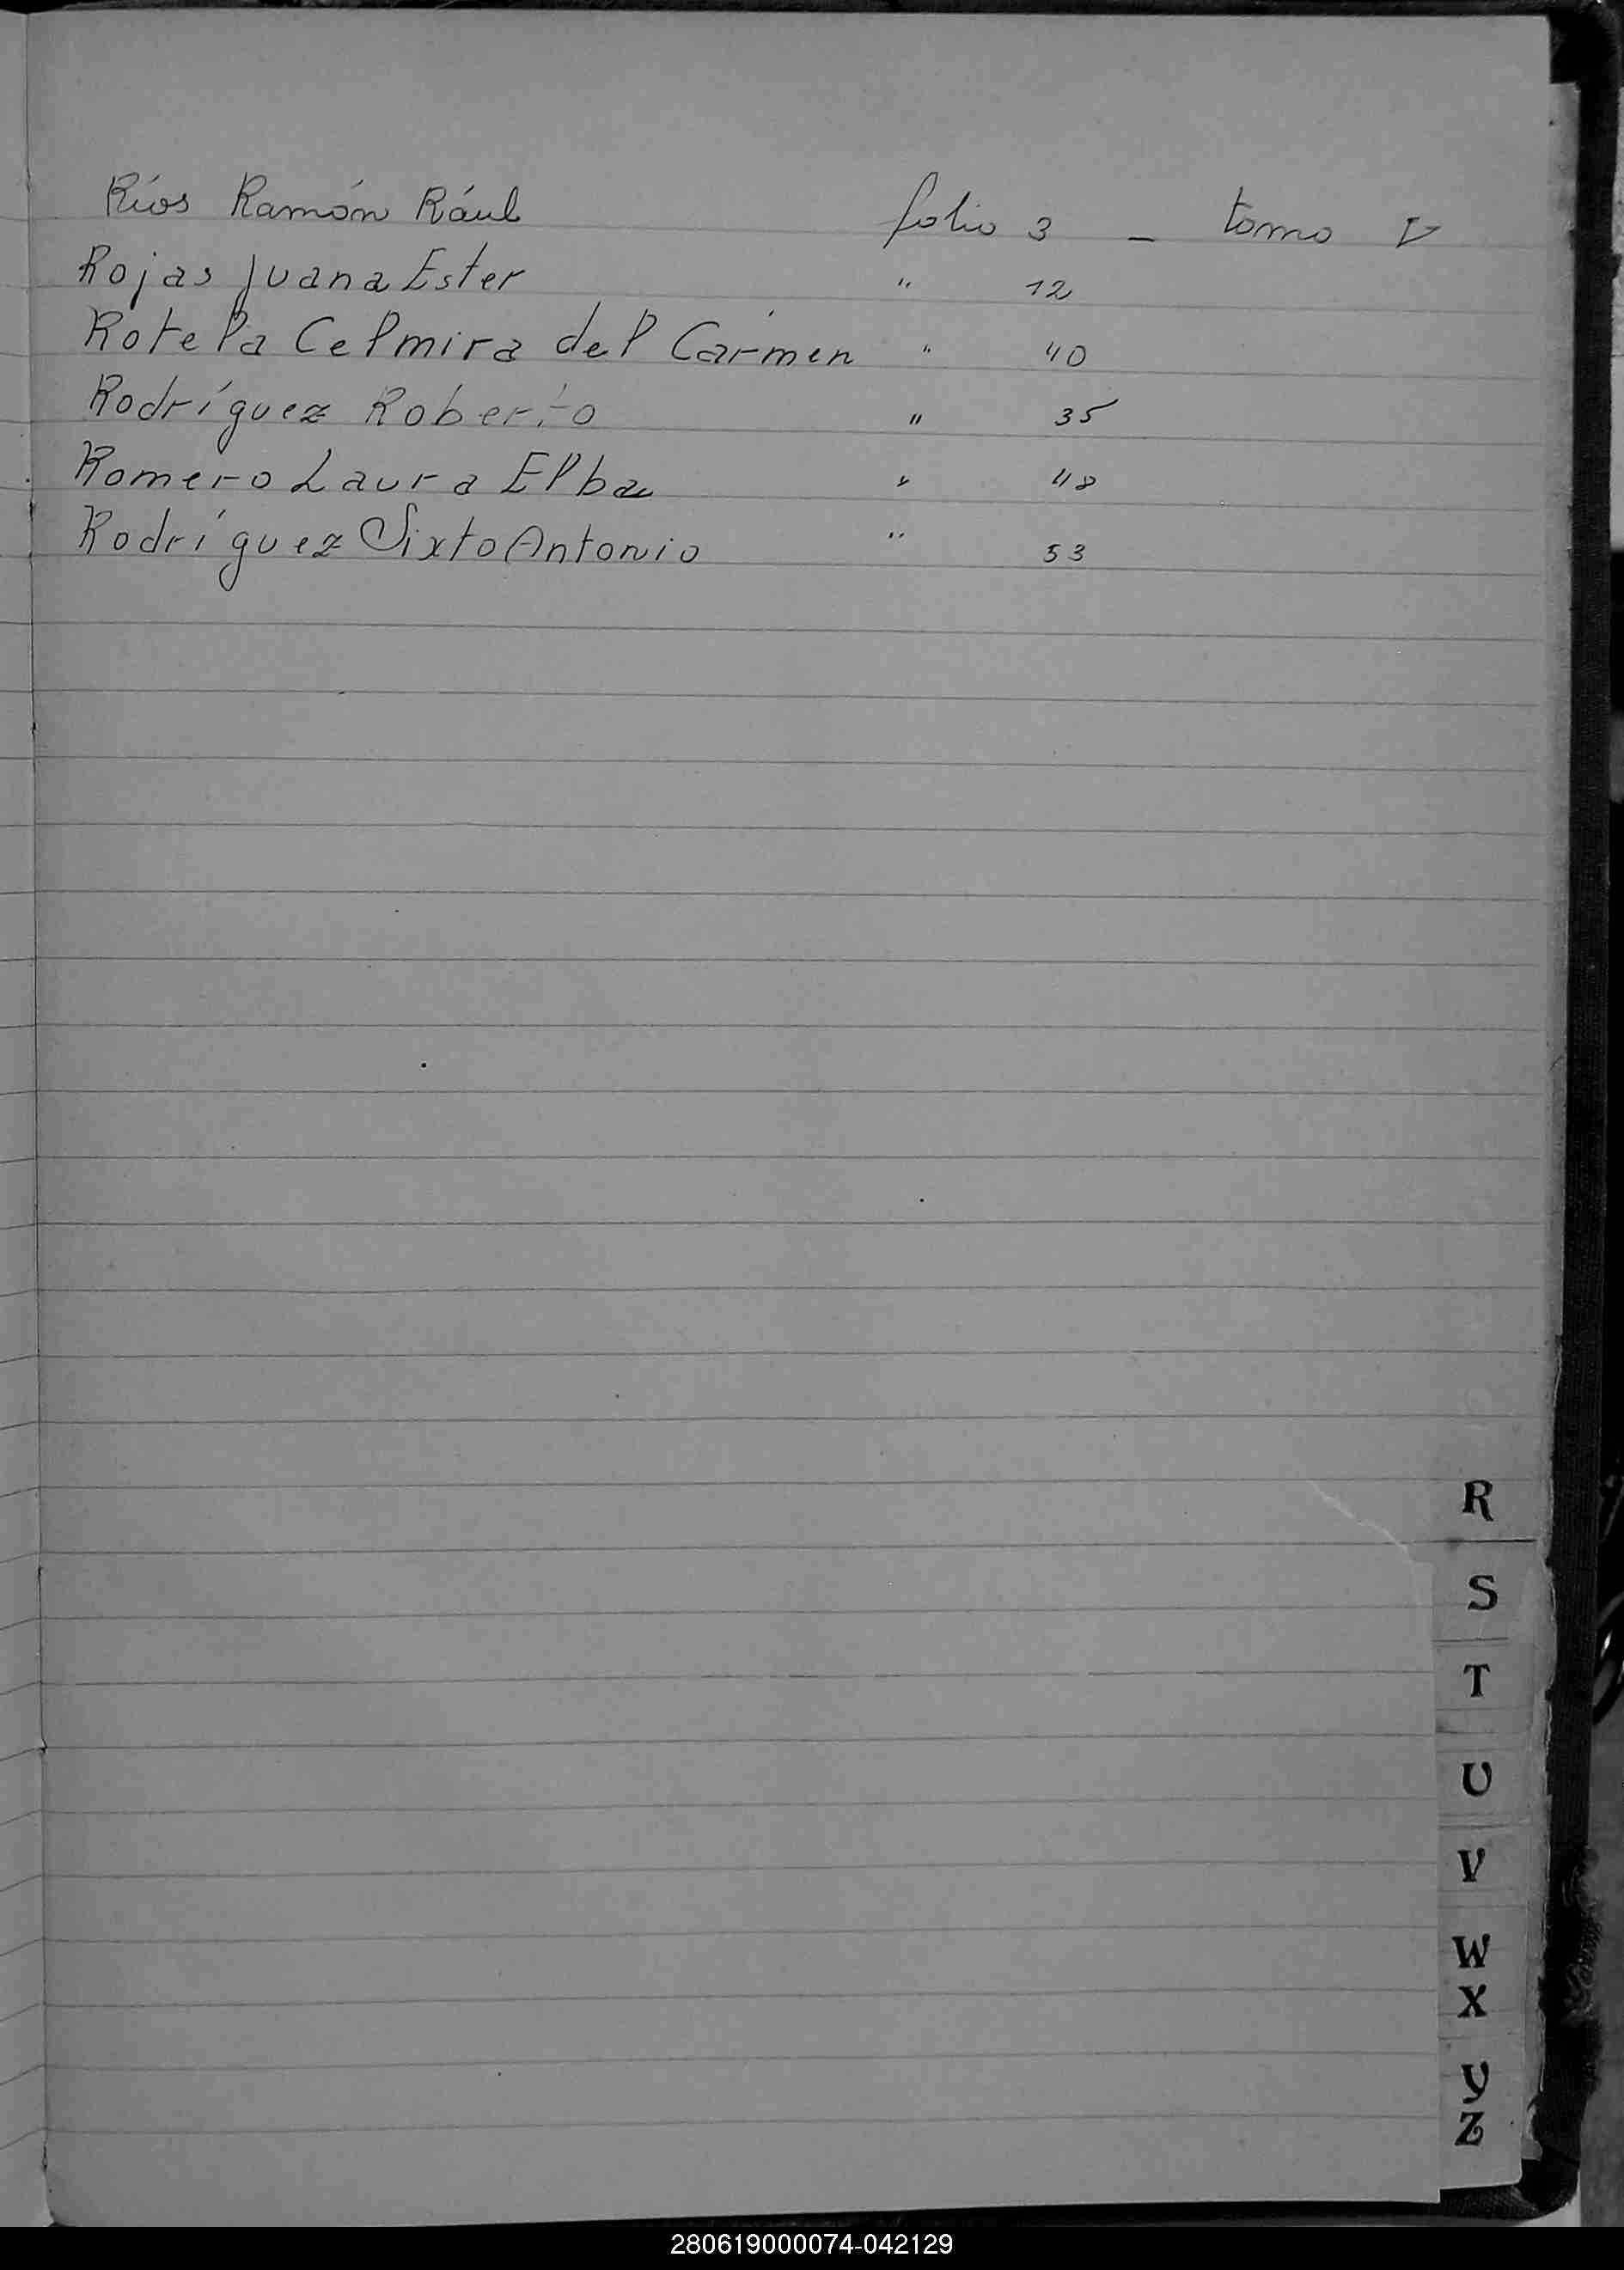 Ríos Ramón Rául folio 3 - tomo V
Rojas Juana Ester " 12
Rotela Celmira del Carmen " 40
Rodríguez Roberto " 35
Romero Laura Elba " 48
Rodríguez Sixto Antonio " 53
R
S
T
U
V
W
X
Y
Z
280619000074-042129